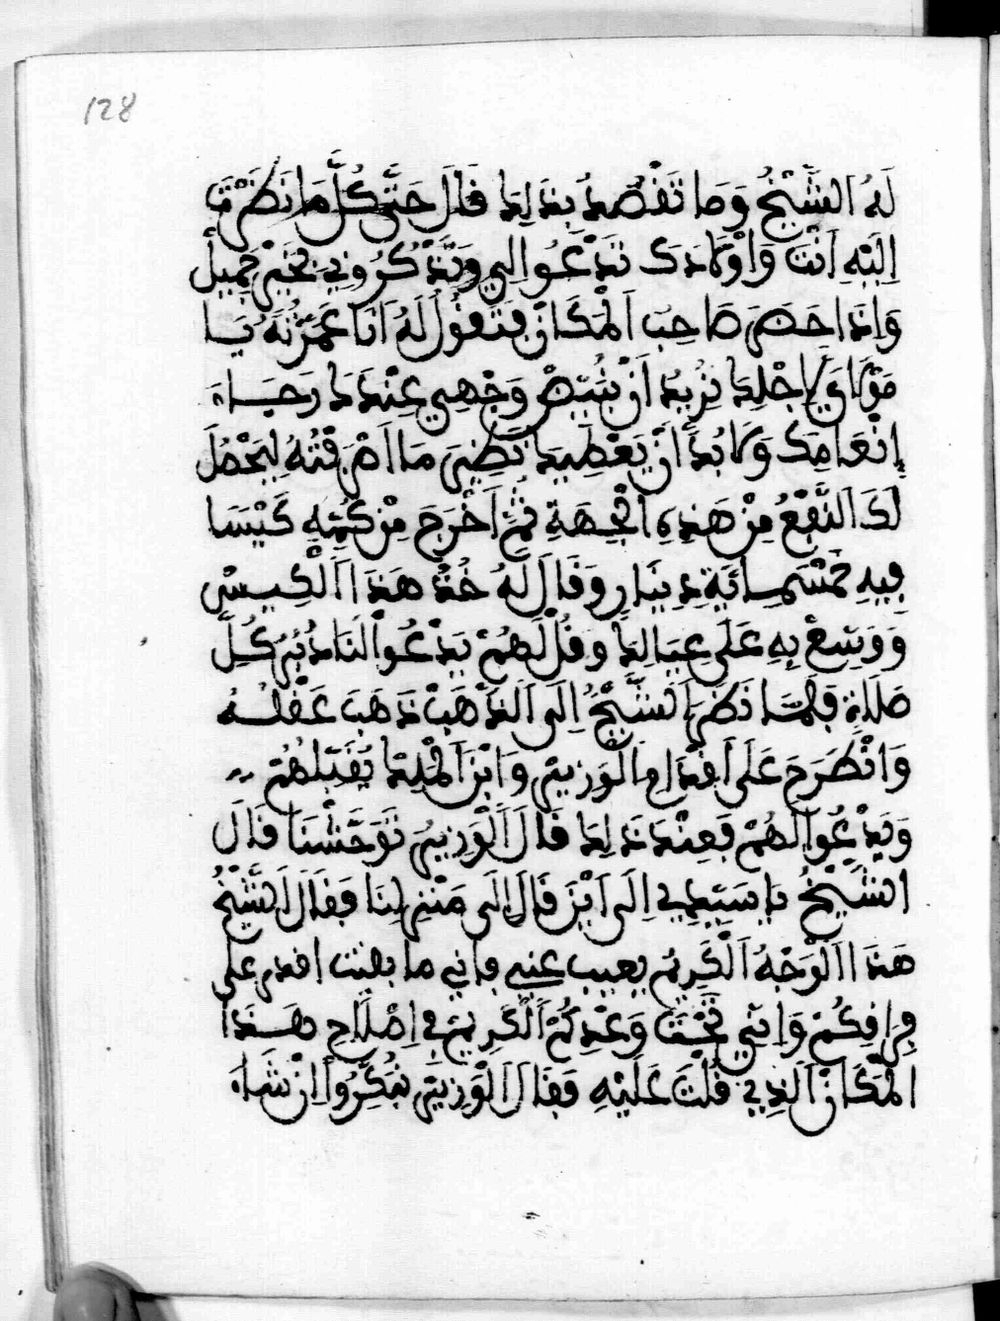 128
لَهُ الشَّيْخُ وَمَا تَقْصُدُ بِذَلِكَ فَقَالَ حَتَّى كُلَّمَا نَظَرْتَ
اِلَيْهِ اَنْتَ وَاَوْلَادَكَ تَدْعُوا لِي وَتَذْكُرُونِي بِخَيْرٍ جَمِيلْ
وَاِذَا حَضَرَ صَاحِبَ الْمَكَانْ فَتَقُولَ لَهُ اَنَا عَمَّرْتُهُ يَا
مَوْلَايَ لِاَجْلِكَ نُرِيدُ اَنْ يَبْيَضَّ وَجْهِي عِنْدَكَ رَجَاءَ
اِنْعَامِكَ وَلَا بُدَّ اَنْ يَعْطِيكَ نَظِيرَ مَا اَصْرَفْتُهُ لِيَحْصُلَ
لَكَ النَّفْعُ مِنْ هَذِهِ الْجِهَةِ ثُمَّ اَخْرَجَ مِنْ كُمِّهِ كَيْسَا
فِيهِ خَمْسَمِائَةِ دِينَارٍ وَقَالَ لَهُ خُذْ هَذَا الْكِيسْ
وَوَسِعْ بِهِ عَلَى عِيَالِكَ وَقُلْ لَهُمْ يَدْعُوا لَنَا دُبُرَ كُلِّ
صَلَاةٍ فَلَمَّا نَظَرَ الشَّيْخُ اِلَى الذَّهَبْ ذَهَبَ عَقْلُهُ
وَانْطَرَحَ عَلَى اَقْدَامِ الْوَزِيرِ وَابْنَ الْمَلِكَ يُقَبِّلُهُمْ
وَيَدْعُوا لَهُمْ فَعِنْدَ ذَلِكَ قَالَ الْوَزِيرُ تَوَحَّشْنَا قَالَ
الشَّيْخُ يَا سَيِّدِي اِلَى اَيْنَ قَالَ اِلَى مَنْزِلِنَا فَقَالَ الشَّيْخُ
هَذَا الْوَجْهُ الْكَرِيمُ يَغِيبُ عَنِّي فَاِنِّي مَا بَقِيتْ اَقْدَرُ عَلَى
فِرَاقِكُمْ وَاِنِّي تَحَقَّقْتُ وَعْدِكُمْ الْكَرِيمَ فِي اِصْلَاحِ هَذَا
الْمَكَانْ الَّذِي قُلْتَ عَلَيْهِ فَقَالَ الْوَزِيرُ نُبَكِّرُوا اِنْ شَاءَ